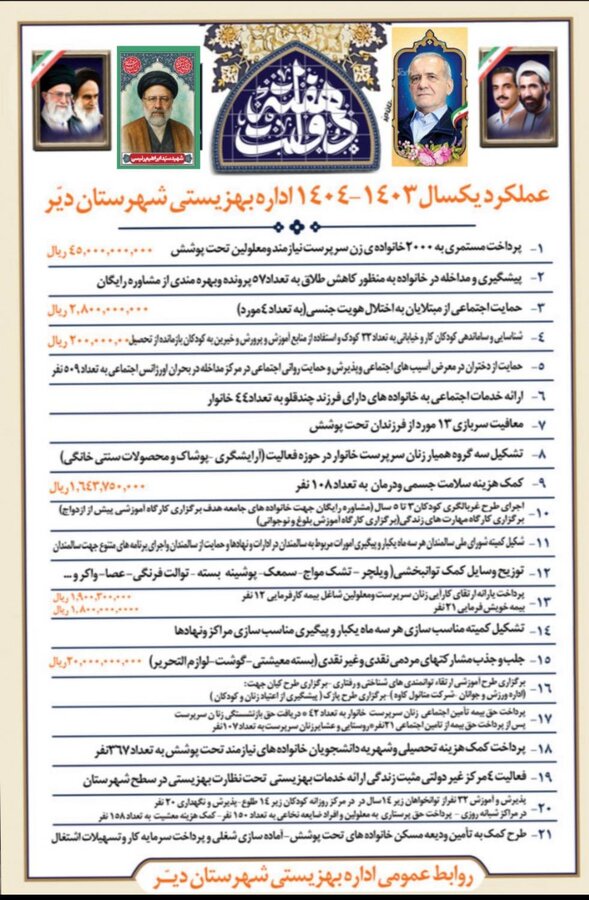 هفته دولت
شهید سید ابراهیم رئیسی
عملکرد یکسال ۱۴۰۳-۱۴۰۴ اداره بهزیستی شهرستان دیّر
۱- پرداخت مستمری به ۲۰۰۰ خانواده ی زن سرپرست نیازمند و معلولین تحت پوشش ۴۵,۰۰۰,۰۰۰,۰۰۰ ریال
۲- پیشگیری و مداخله در خانواده به منظور کاهش طلاق به تعداد ۵۷ پرونده و بهره مندی از مشاوره رایگان
۳- حمایت اجتماعی از مبتلایان به اختلال هویت جنسی (به تعداد ۴ مورد) ۲,۸۰۰,۰۰۰,۰۰۰ ریال
۴- شناسایی و ساماندهی کودکان کار و خیابانی به تعداد ۳۳ کودک و استفاده از منابع آموزش و پرورش و خیرین به کودکان بازمانده از تحصیل ۲۰۰,۰۰۰,۰۰۰ ریال
۵- حمایت از دختران در معرض آسیب های اجتماعی و پذیرش و حمایت روانی اجتماعی در مرکز مداخله در بحران اورژانس اجتماعی به تعداد ۵۰۹ نفر
۶- ارائه خدمات اجتماعی به خانواده های دارای فرزند چندقلو به تعداد ۴۴ خانوار
۷- معافیت سربازی ۱۳ مورد از فرزندان تحت پوشش
۸- تشکیل سه گروه همیار زنان سرپرست خانوار در حوزه فعالیت (آرایشگری -پوشاک و محصولات سنتی خانگی)
۹- کمک هزینه سلامت جسمی و درمان به تعداد ۱۰۸ نفر ۱,۶۴۳,۷۵۰,۰۰۰ ریال
۱۰- اجرای طرح غربالگری کودکان ۳ تا ۵ سال (مشاوره رایگان جهت خانواده های جامعه هدف برگزاری کارگاه آموزشی پیش از ازدواج)
برگزاری کارگاه مهارت های زندگی (برگزاری کارگاه آموزش بلوغ و نوجوانی)
۱۱- شکیل کمیته شورای ملی سالمندان هر سه ماه یکبار و پیگیری امورات مربوط به سالمندان در ادارات و نهادها و حمایت از سالمندان و اجرای برنامه های متنوع جهت سالمندان
۱۲- توزیع وسایل کمک توانبخشی( ویلچر - تشک مواج- سمعک- پوشینه بسته - توالت فرنگی- عصا- واکر و ...
۱۳- پرداخت یارانه ارتقای کارآیی زنان سرپرست ومعلولین شاغل بیمه کارفرمایی ۱۲ نفر ۱,۹۰۰,۳۰۰,۰۰۰ ریال
بیمه خویش فرمایی ۲۱ نفر ۱,۸۰۰,۰۰۰,۰۰۰۰ ریال
۱۴- تشکیل کمیته مناسب سازی هر سه ماه یکبار و پیگیری مناسب سازی مراکز و نهادها
۱۵- جلب و جذب مشارکتهای مردمی نقدی و غیر نقدی (بسته معیشتی- گوشت- لوازم التحریر) ۲۰,۰۰۰,۰۰۰,۰۰۰ ریال
۱۶- برگزاری طرح آموزشی ارتقاء توانمندی های شناختی و رفتاری -برگزاری طرح کیان جهت:
(اداره ورزش و جوانان -شرکت متانول کاوه)-برگزاری طرح پازک ( پیشگیری از اعتیاد زنان و کودکان)
۱۷- پرداخت حق بیمه تأمین اجتماعی زنان سرپرست خانوار به تعداد ۴۲ * دریافت حق بازنشستگی زنان سرپرست
پس از پرداخت حق بیمه از تامین اجتماعی ۲۱نفر*روستایی و عشایر زنان سرپرست به تعداد ۱۰۷نفر
۱۸- پرداخت کمک هزینه تحصیلی و شهریه دانشجویان خانواده های نیازمند تحت پوشش به تعداد ۳۶۷نفر
۱۹- فعالیت ۴ مرکز غیر دولتی مثبت زندگی ارائه خدمات بهزیستی تحت نظارت بهزیستی در سطح شهرستان
۲۰- پذیرش و آموزش ۳۲ نفر از توانخواهان زیر ۱۴ سال در در مرکز روزانه کودکان زیر ۱۴ طلوع - پذیرش و نگهداری ۲۰ نفر
در مراکز شبانه روزی - پرداخت حق پرستاری به معلولین و افراد ضایعه نخاعی به تعداد ۱۵۰ نفر- کمک هزینه معیشت به تعداد ۱۵۸ نفر
۲۱- طرح کمک به تأمین ودیعه مسکن خانواده های تحت پوشش- آماده سازی شغلی و پرداخت سرمایه کار و تسهیلات اشتغال
روابط عمومی اداره بهزیستی شهرستان دیـّر